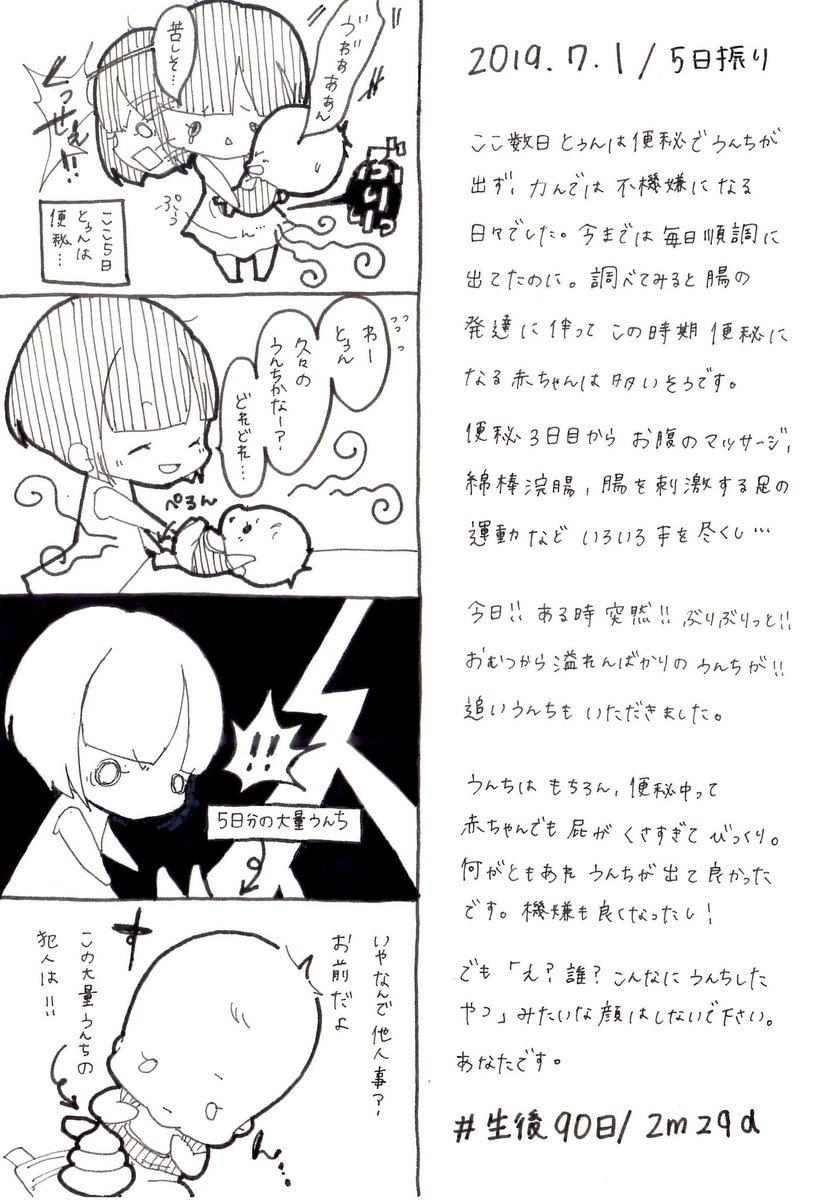 苦しそ…
ゔぁぁぁぁん
くっせぇ!!
ぷぅ
ぶりりりっ
ここ5日
とぅんは
便秘…
わー
とぅん
久々の
うんちかなー?
どれどれ…
ぺろん
!!
5日分の大量うんち
す
いやなんで他人事?
お前だよ
この大量うんちの
犯人は!!
ん…
2019.7.1/5日振り
ここ数日とぅんは便秘でうんちが
出ず、力んでは不機嫌になる
日々でした。今までは毎日順調に
出てたのに。調べてみると腸の
発達に伴ってこの時期便秘に
なる赤ちゃんは多いそうです。
便秘3日目からお腹のマッサージ、
綿棒浣腸、腸を刺激する足の
運動などいろいろ手を尽くし…
今日!!ある時突然!!ぶりぶりっと!!
おむつから溢れんばかりのうんちが!!
追いうんちもいただきました。
うんちはもちろん、便秘中って
赤ちゃんでも屁がくさすぎてびっくり。
何がともあれうんちが出て良かった
です。機嫌も良くなったし!
でも「え?誰?こんなにうんちした
やつ」みたいな顔はしないで下さい。
あなたです。
#生後90日/2m29d